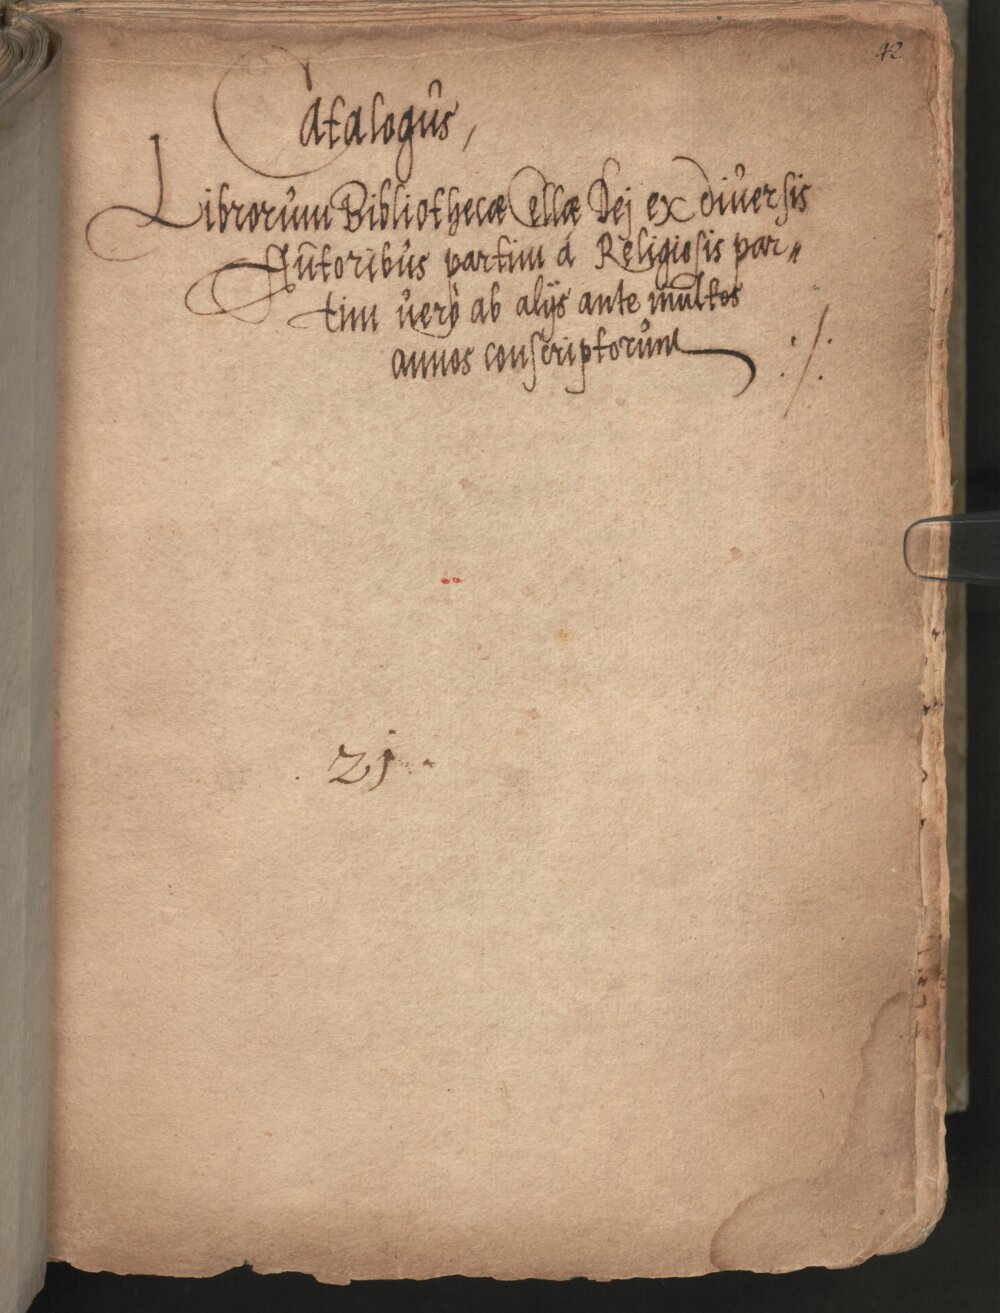 42
Catalogus,
Librorum Bibliothecæ Cellæ Dej ex diuersis
Autoribus partim à Religiosis par„
tim verò ab alijs ante multos
annos conscriptorum ./.
21